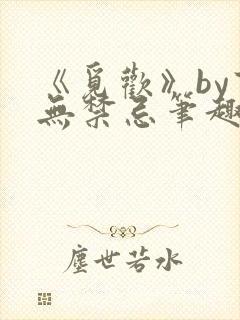 《覓歡》by
無禁忌筆趣
塵世若水